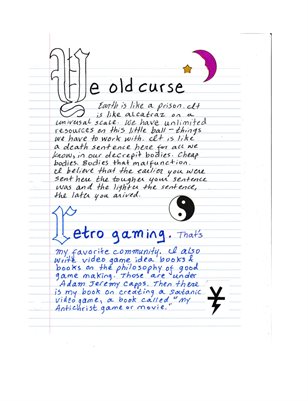 Ye old curse
Earth is like a prison. It
is like alcatraz on a
universal scale. We have unlimited
resources on this little ball - things
we have to work with. It is like
a death sentence here for all we
know, in our decrepit bodies. Cheap
bodies. Bodies that malfunction.
I believe that the earlier you were
sent here the tougher your sentence
was and the lighter the sentence,
the later you arived.
retro gaming. That's
my favorite community. I also
write video game idea books &
books on the philosophy of good
game making. Those are "under
Adam Jeremy Capps. Then there
is my book on creating a Satanic
video game, a book called "my
Antichrist game or movie."